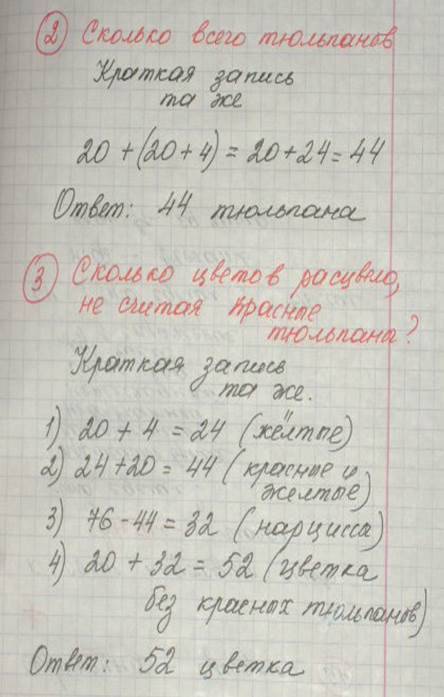 ② Сколько всего тюльпанов
Краткая запись
та же
20 + (20 + 4) = 20 + 24 = 44
Ответ: 44 тюльпана
③ Сколько цветов расцвело,
не считая красные
тюльпаны?
Краткая запись
та же.
1) 20 + 4 = 24 (жёлтые)
2) 24 + 20 = 44 (красные и
желтые)
3) 76 - 44 = 32 (нарцисса)
4) 20 + 32 = 52 (цветка
без красных тюльпанов)
Ответ: 52 цветка